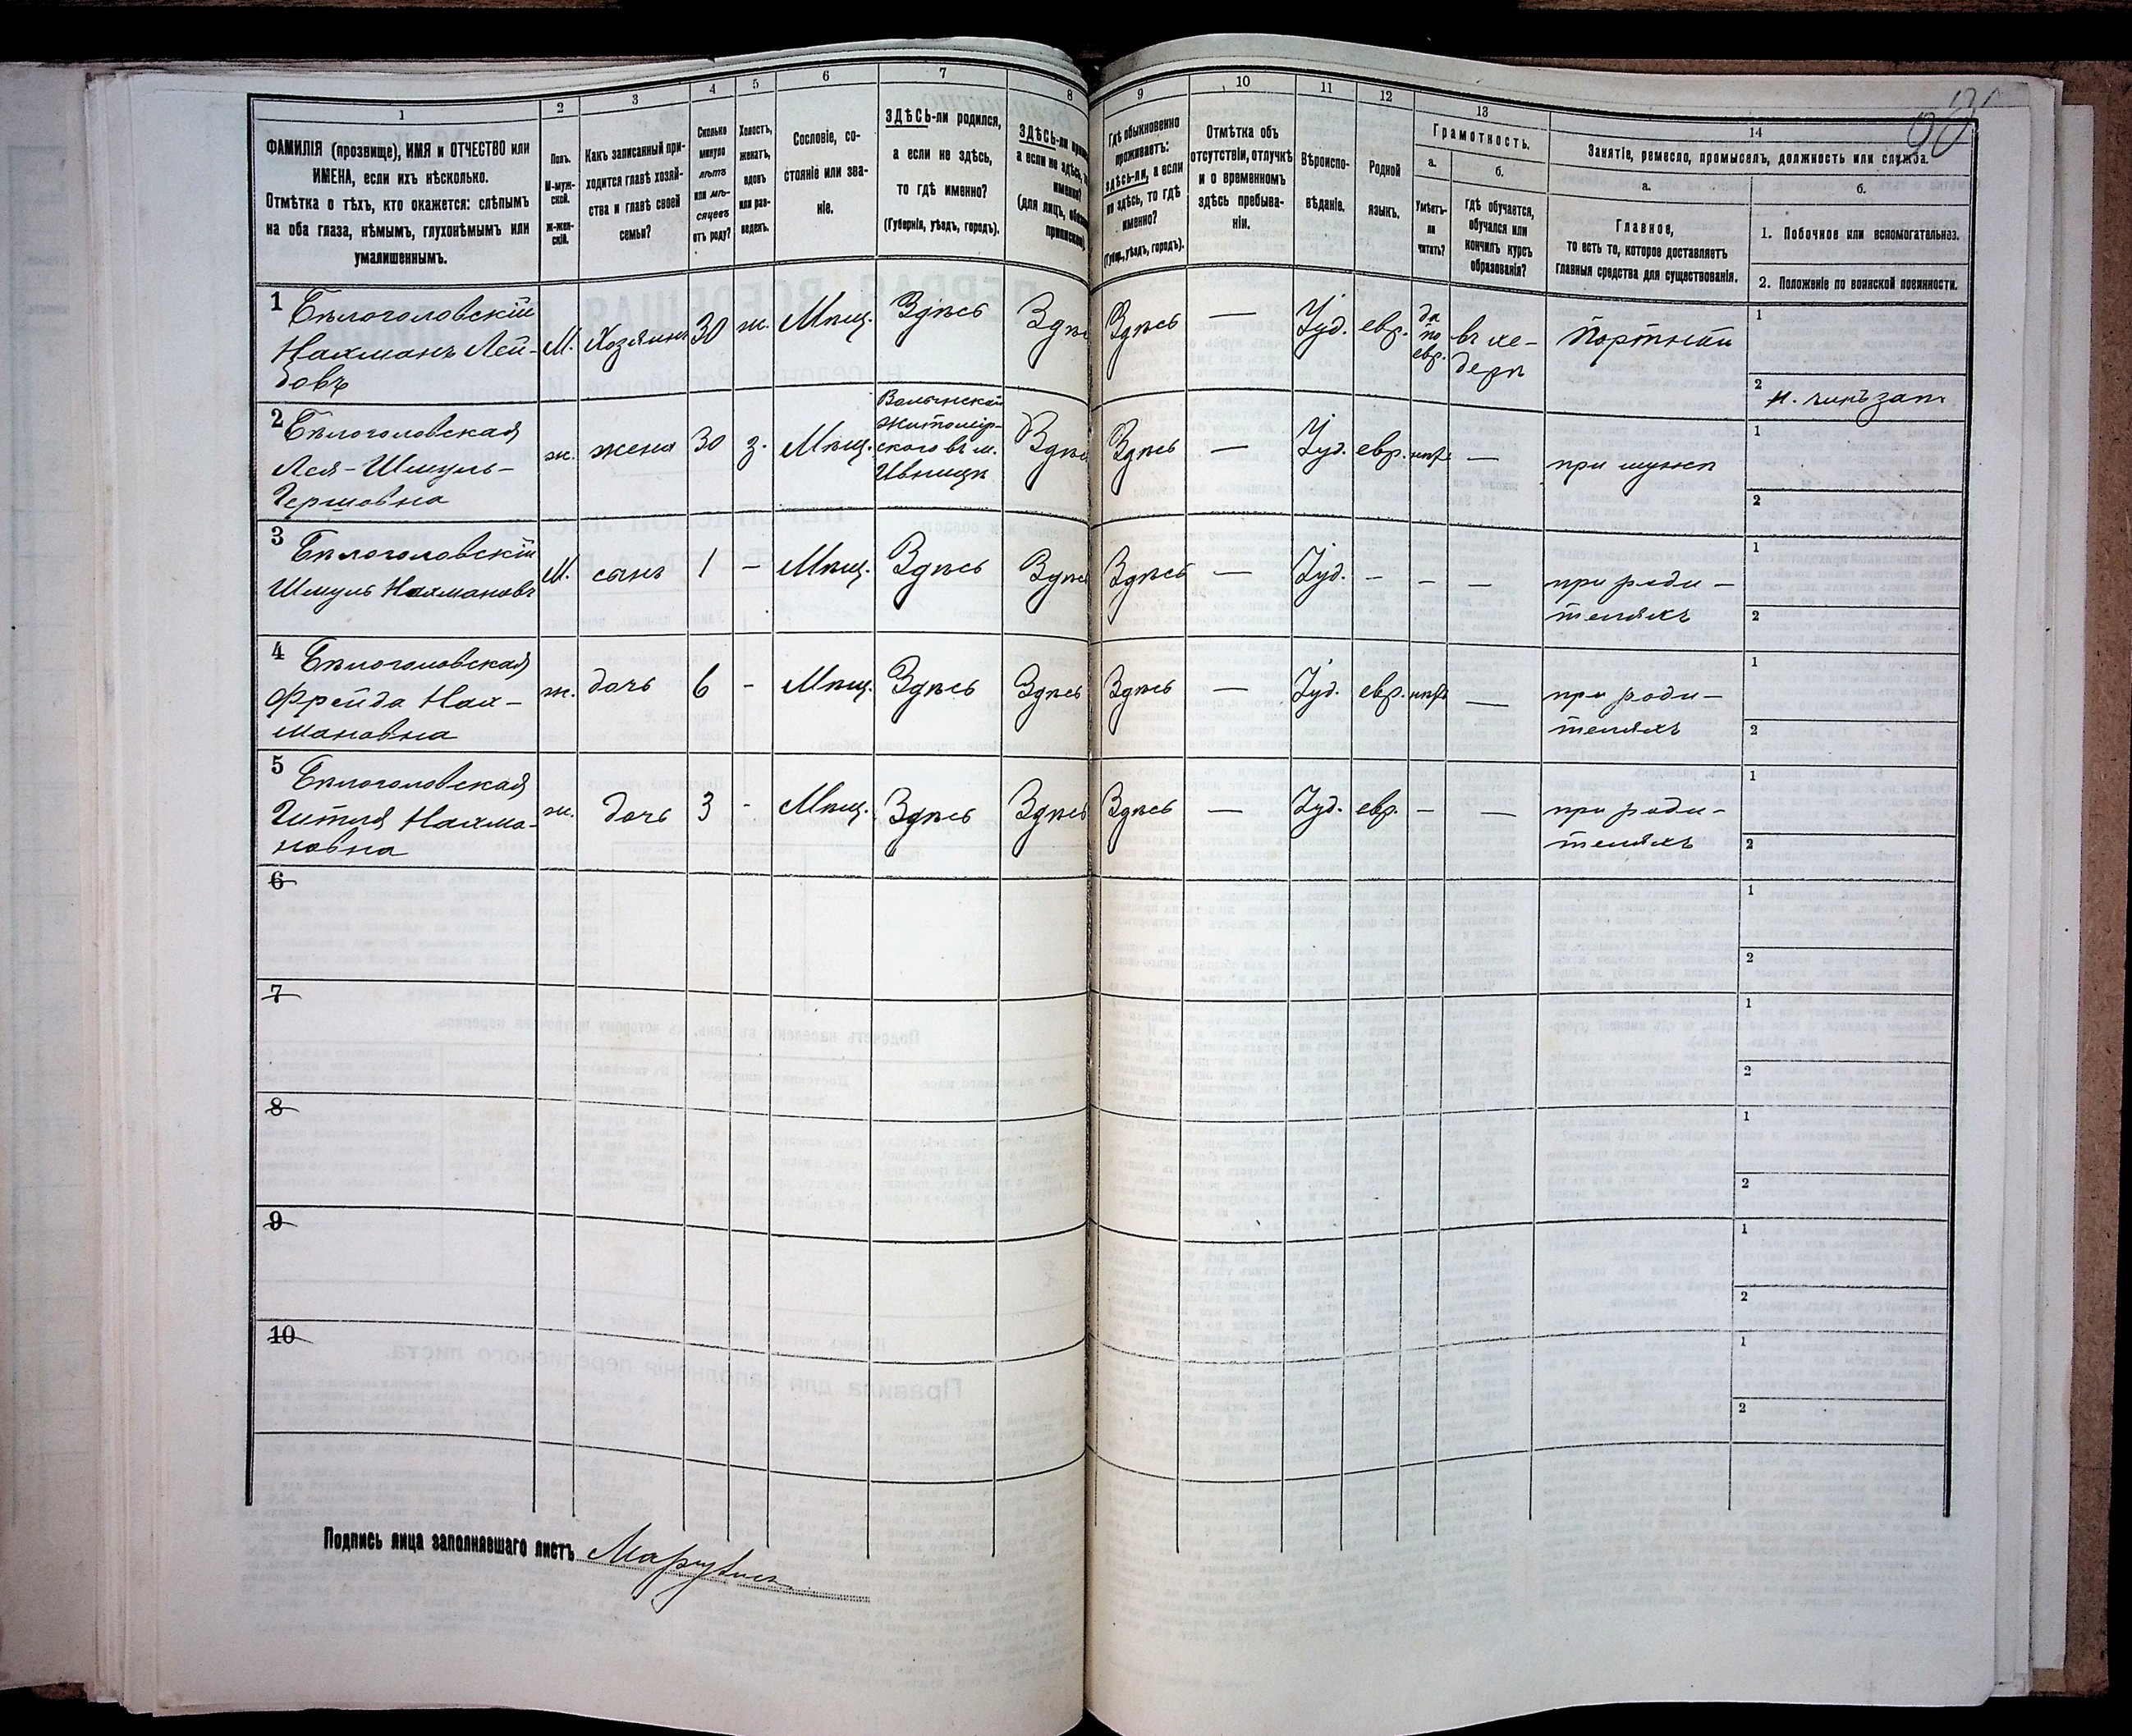 1
2
3
4
5
6
7
8
ФАМИЛІЯ (прозвище), ИМЯ и ОТЧЕСТВО или
ИМЕНА, если ихъ нѣсколько.
Отмѣтка о тѣхъ, кто окажется: слѣпымъ
на оба глаза, нѣмымъ, глухонѣмымъ или
умалишеннымъ.
Полъ.
М-муж-
ской.
Ж-жен-
скій.
Какъ записанный при-
ходится главѣ хозяй-
ства и главѣ своей
семьи?
Сколько
минуло
лѣтъ
или мѣ-
сяцевъ
отъ роду?
Холостъ,
женатъ,
вдовъ
или раз-
веденъ.
Сословіе, со-
стояніе или зва-
ніе.
ЗДѢСЬ-ли родился,
а если не здѣсь,
то гдѣ именно?
(Губернія, уѣздъ, городъ).
ЗДѢСЬ-ли
а если не здѣсь,
(для лицъ,
9
10
11
12
13
14
Гдѣ обыкновенно
проживаетъ:
здѣсь-ли, а если
не здѣсь, то гдѣ
именно?
(Губ., уѣздъ, городъ).
Отмѣтка объ
отсутствіи, отлучкѣ
и о временномъ
здѣсь пребыва-
ніи.
Вѣроиспо-
вѣданіе.
Родной
языкъ.
Грамотность.
а.
б.
Умѣетъ-
ли
читать?
гдѣ обучается,
обучался или
кончилъ курсъ
образованія?
Занятіе, ремесло, промыселъ, должность или служба.
а.
б.
Главное,
то есть то, которое доставляетъ
главныя средства для существованія.
1. Побочное или вспомогательное.
2. Положеніе по воинской повинности.
1 Бѣлоголовскій
Нахманъ Лей-
бовъ
М. Хозяинъ 30 ж. Мѣщ. Здѣсь Здѣ
Здѣсь — Іуд. евр. да
по
евр.
въ хе-
дерѣ
Портной
1
2 н. чинъ зап.
2 Бѣлоголовская
Лея-Шмуль-
Гершовна
ж. жена 30 з. Мѣщ.
Волынской
Житомір-
скаго въ м.
Ивницѣ
Здѣс
Здѣсь — Іуд. евр. нѣтъ — при мужѣ
1
2
3 Бѣлоголовскій
Шмуль Нахмановъ
М. сынъ 1 - Мѣщ. Здѣсь Здѣсь
Здѣсь — Іуд. - - — при роди-
теляхъ
1
2
4 Бѣлоголовская
Фрейда Нах-
мановна
ж. дочь 6 - Мѣщ. Здѣсь Здѣсь
Здѣсь — Іуд. евр. нѣтъ — при роди-
теляхъ
1
2
5 Бѣлоголовская
Гитля Нахма-
новна
ж. дочь 3 - Мѣщ. Здѣсь Здѣсь
Здѣсь — Іуд. евр. - — при роди-
теляхъ
1
2
6
1
2
7
1
2
8
1
2
9
1
2
10
1
2
Подпись лица заполнявшаго листъ